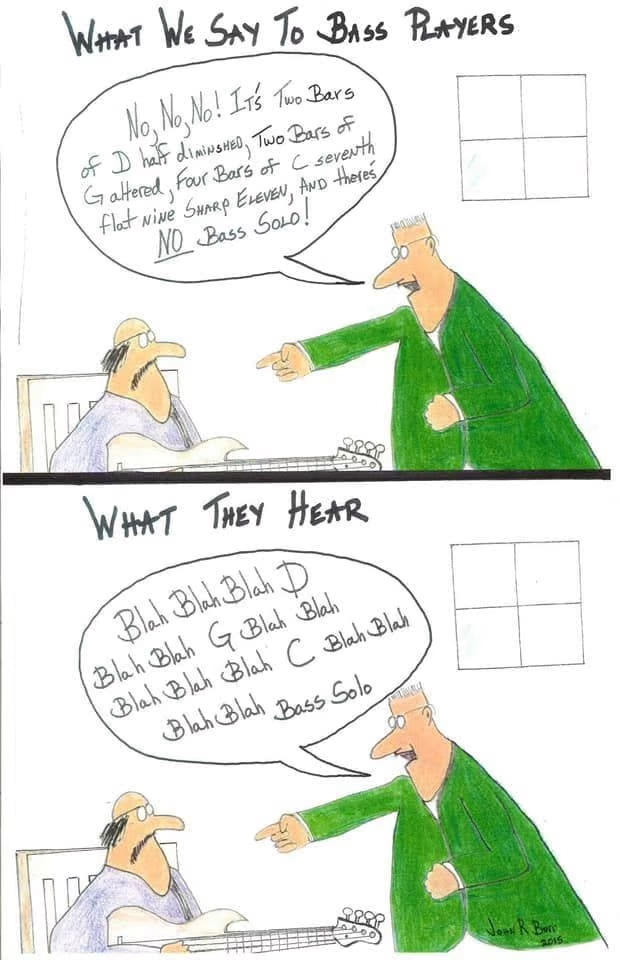 What We Say To Bass Players
No, No, No! It's Two Bars
of D half diminshed, Two Bars of
G altered, Four Bars of C seventh
flat nine Sharp Eleven, And there's
NO Bass Solo!
What They Hear
Blah Blah Blah D
Blah Blah G Blah Blah
Blah Blah Blah C Blah Blah
Blah Blah Bass Solo
John R Burr
2015